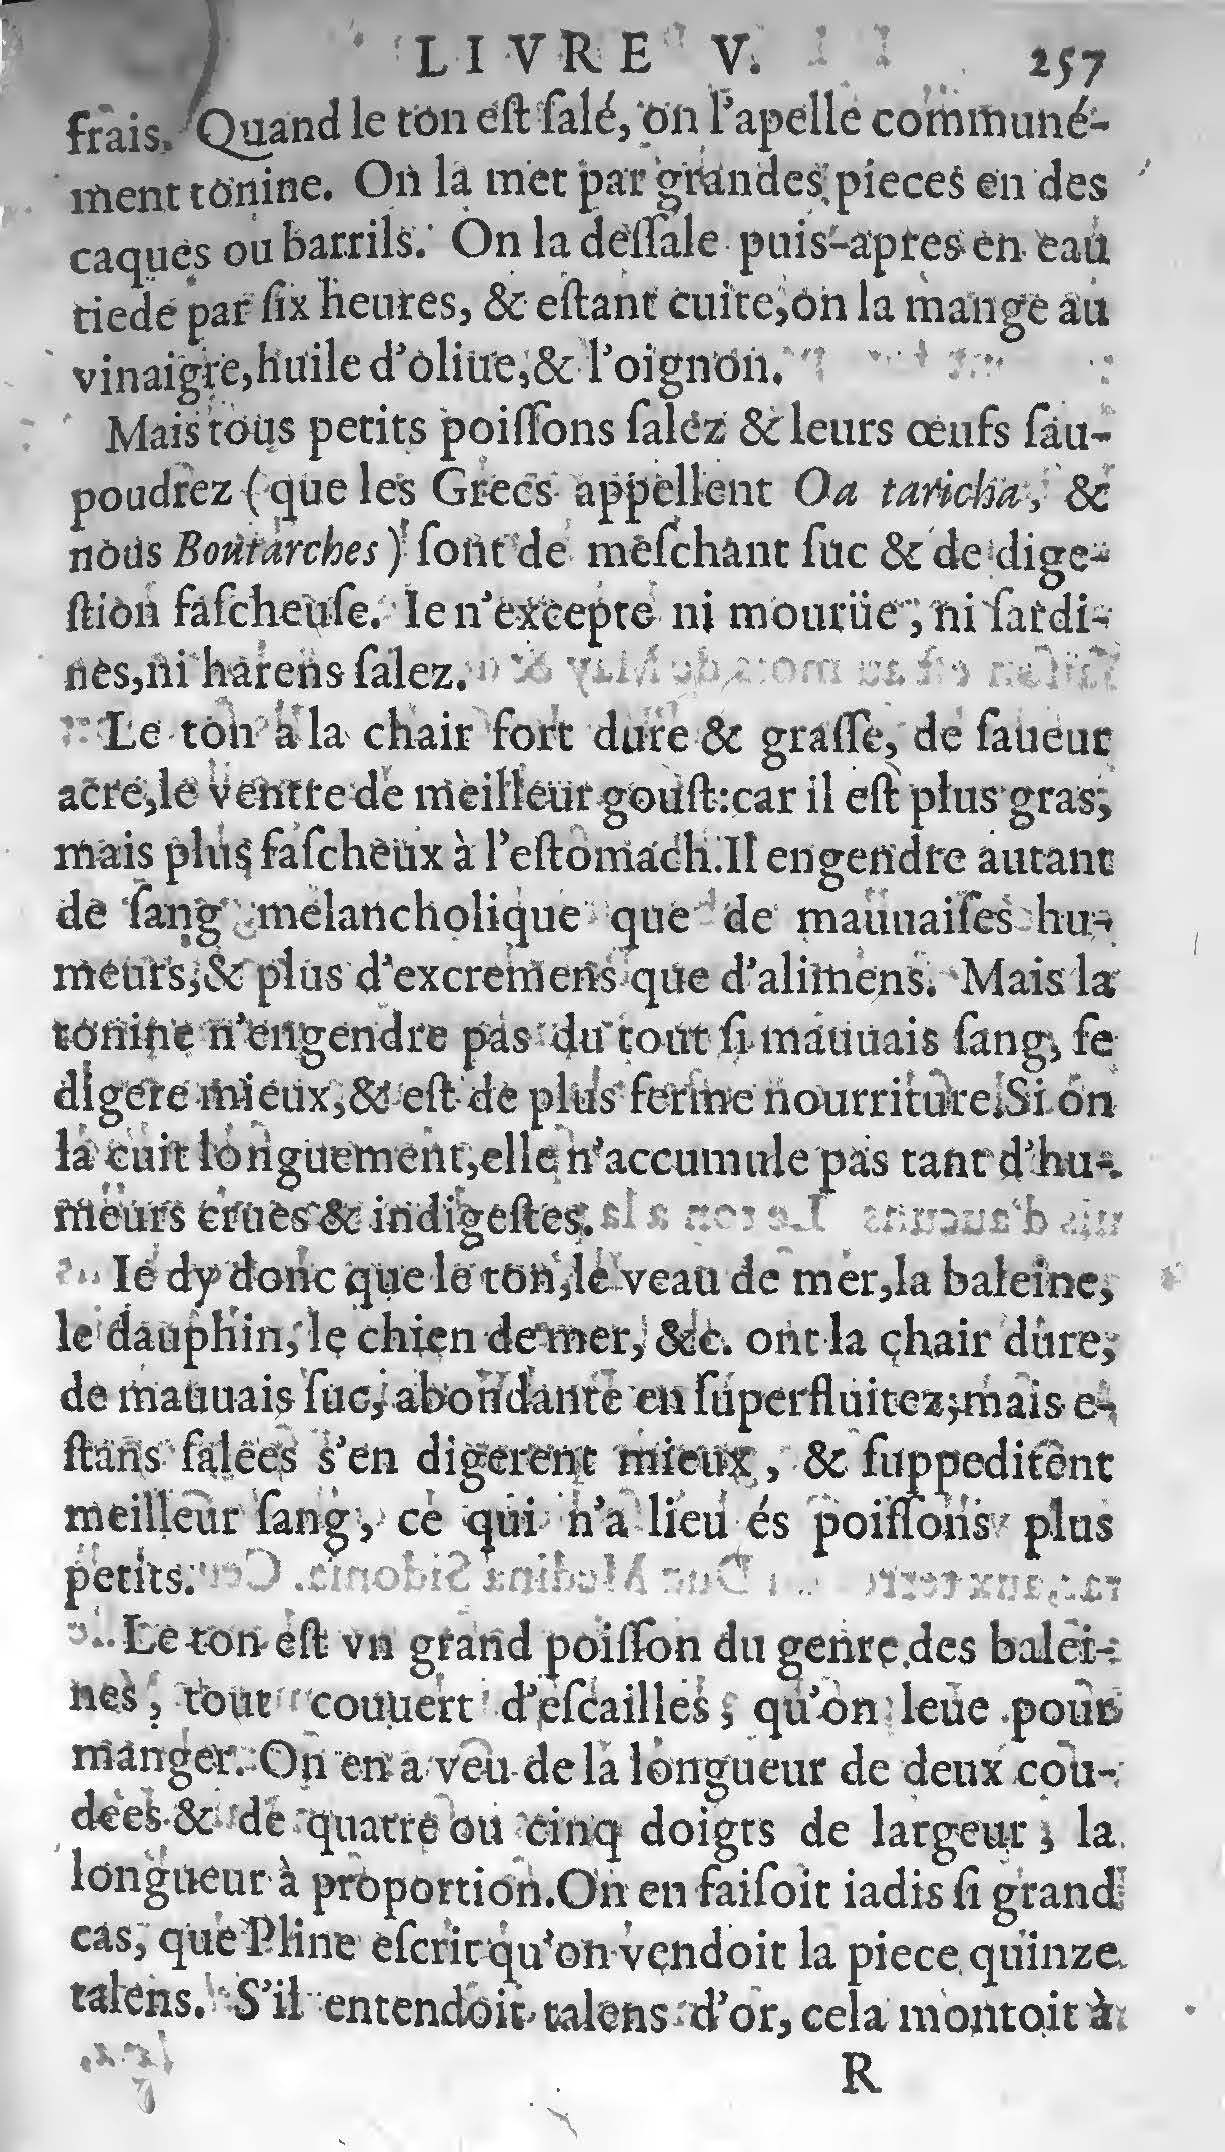 LIVRE V. 257
frais. Quand le ton est salé, on l'apelle communé-
ment tonine. On la met par grandes pieces en des
caques ou barrils. On la dessale puis-apres en eau
tiede par six heures, & estant cuite, on la mange au
vinaigre, huile d'oliue, & l'oignon.
Mais tous petits poissons salez & leurs œufs sau-
poudrez (que les Grecs appellent Oa taricha, &
nous Boutarches) sont de meschant suc & de dige-
stion fascheuse. Ie n'excepte ni mourüe, ni sardi-
nes, ni harens salez.
Le ton a la chair fort dure & grasse, de saueur
acre, le ventre de meilleur goust: car il est plus gras,
mais plus fascheux à l'estomach. Il engendre autant
de sang melancholique que de mauuaises hu-
meurs, & plus d'excremens que d'alimens. Mais la
tonine n'engendre pas du tout si mauuais sang, se
digere mieux, & est de plus ferme nourriture. Si on
la cuit longuement, elle n'accumule pas tant d'hu-
meurs crues & indigestes.
Ie dy donc que le ton, le veau de mer, la baleine,
le dauphin, le chien de mer, &c. ont la chair dure,
de mauuais suc, abondante en superfluitez; mais e-
stans salees s'en digerent mieux, & suppeditent
meilleur sang, ce qui n'a lieu és poissons plus
petits.
Le ton est vn grand poisson du genre des balei-
nes, tout couuert d'escailles, qu'on leue pour
manger. On en a veu de la longueur de deux cou-
dees & de quatre ou cinq doigts de largeur, la
longueur à proportion. On en faisoit iadis si grand
cas, que Pline escrit qu'on vendoit la piece quinze
talens. S'il entendoit talens d'or, cela montoit à
R